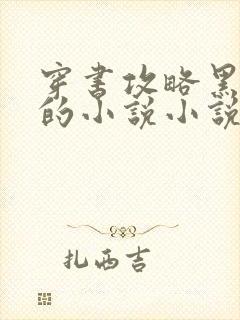 穿书攻略黑
的小说小说
扎西吉